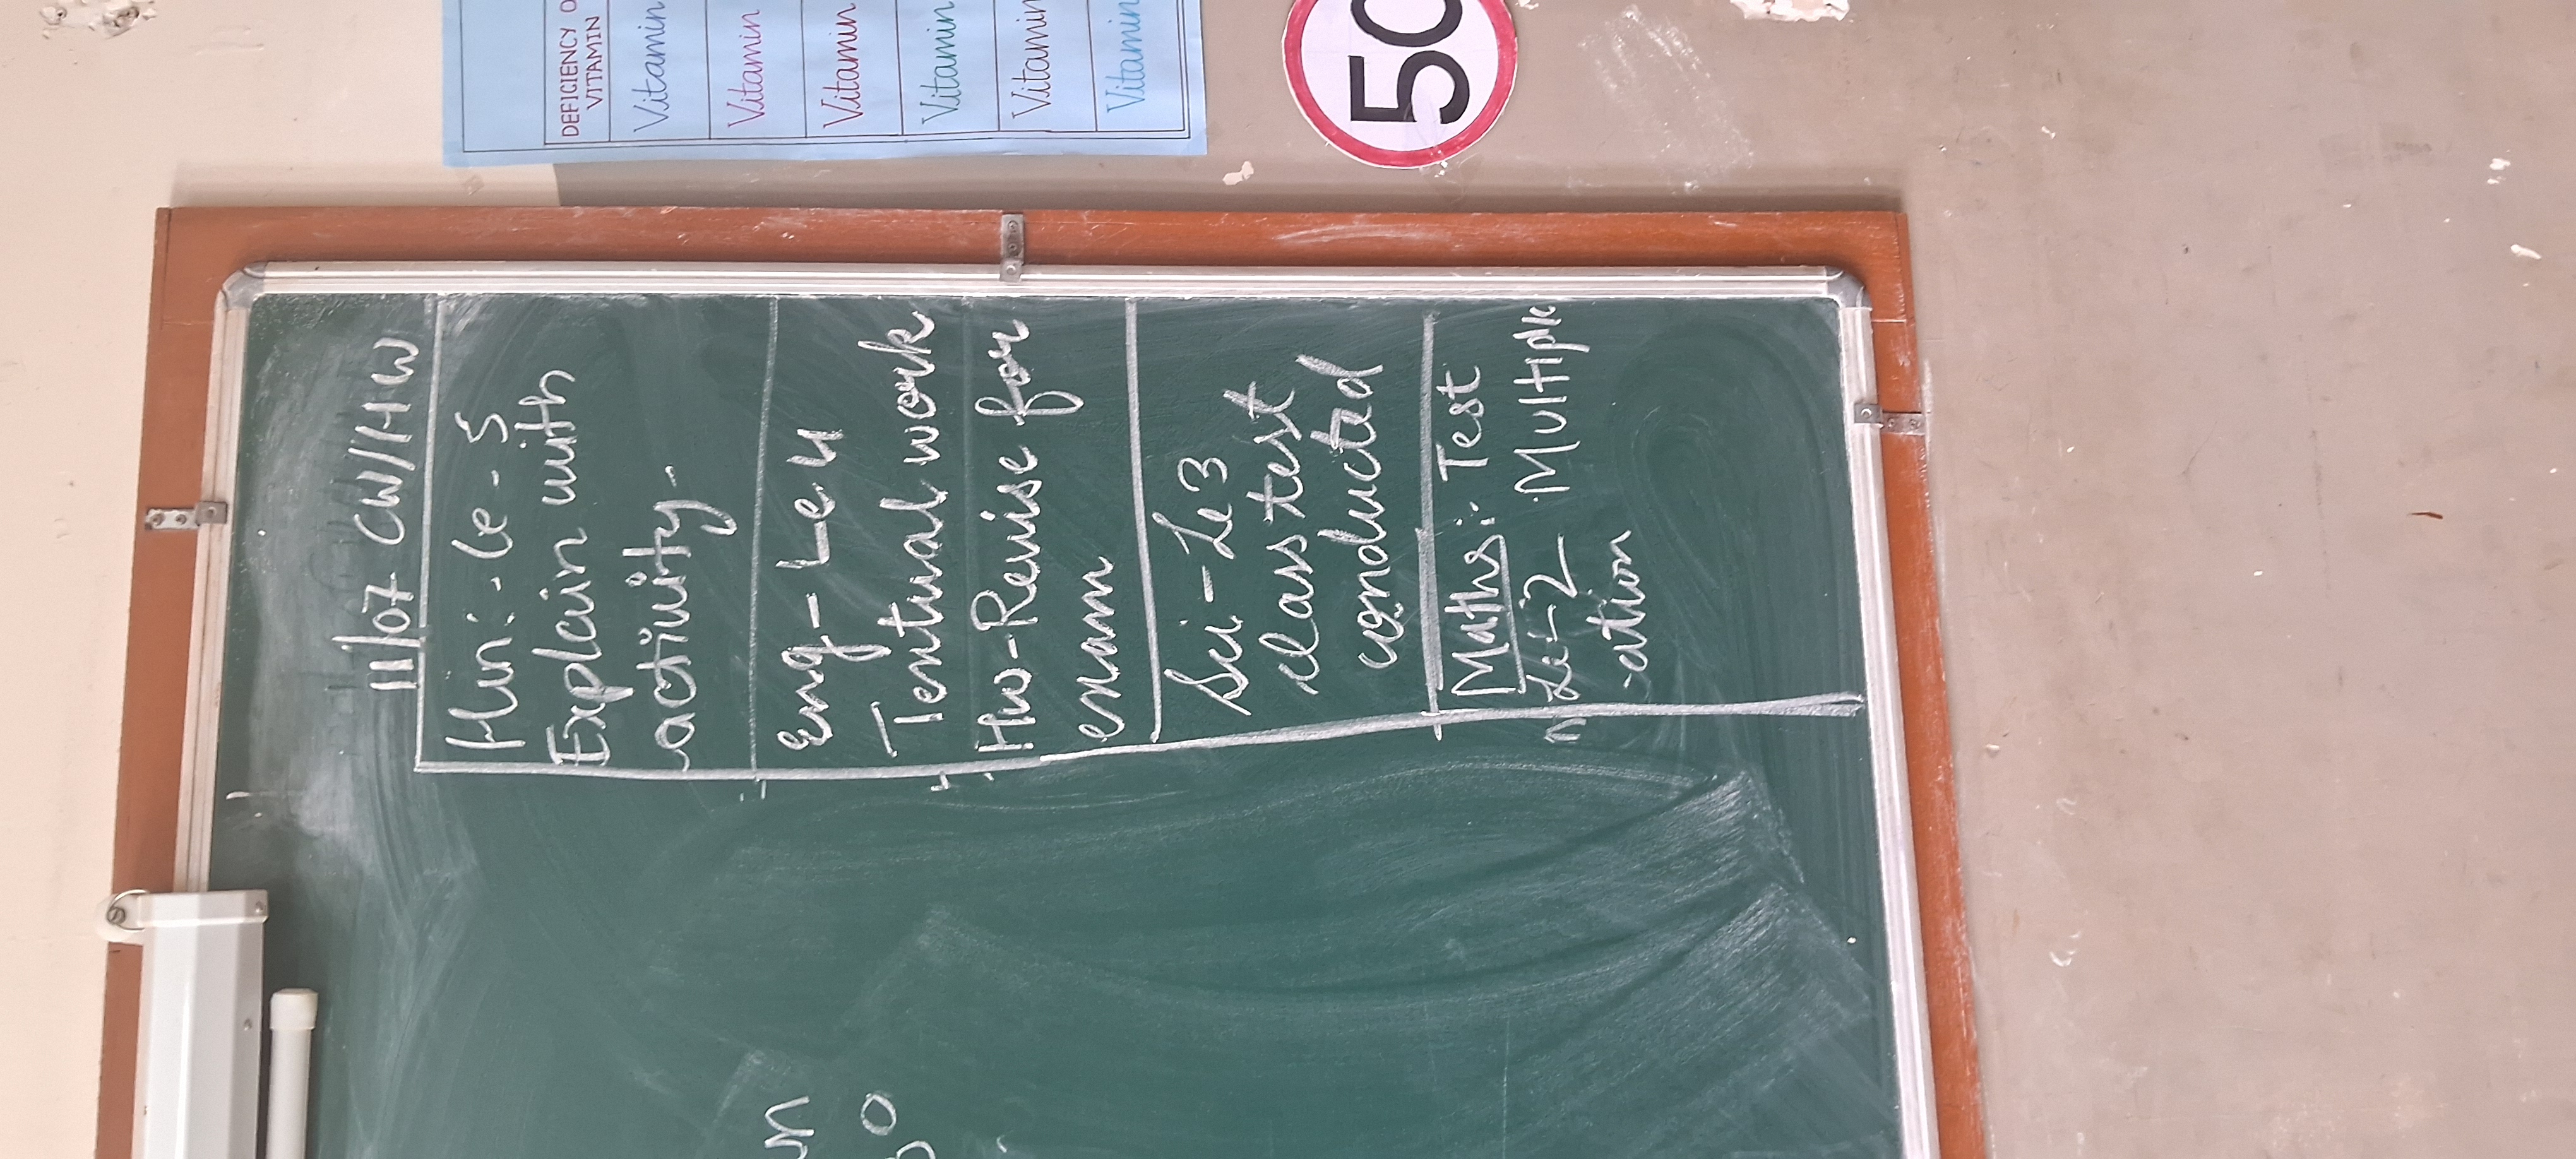 DEFICIENCY O
VITAMIN
Vitamin
Vitamin
Vitamin
Vitamin
Vitamin
Vitamin
50
11/07 CW/HW
Hin:- Le - 5
Explain with
activity.
Eng - Le 4
Textual work
Hw - Revise for
exam
Sci - Le 3
class test
conducted
Maths:- Test
Le - 2 Multiplic
-ation